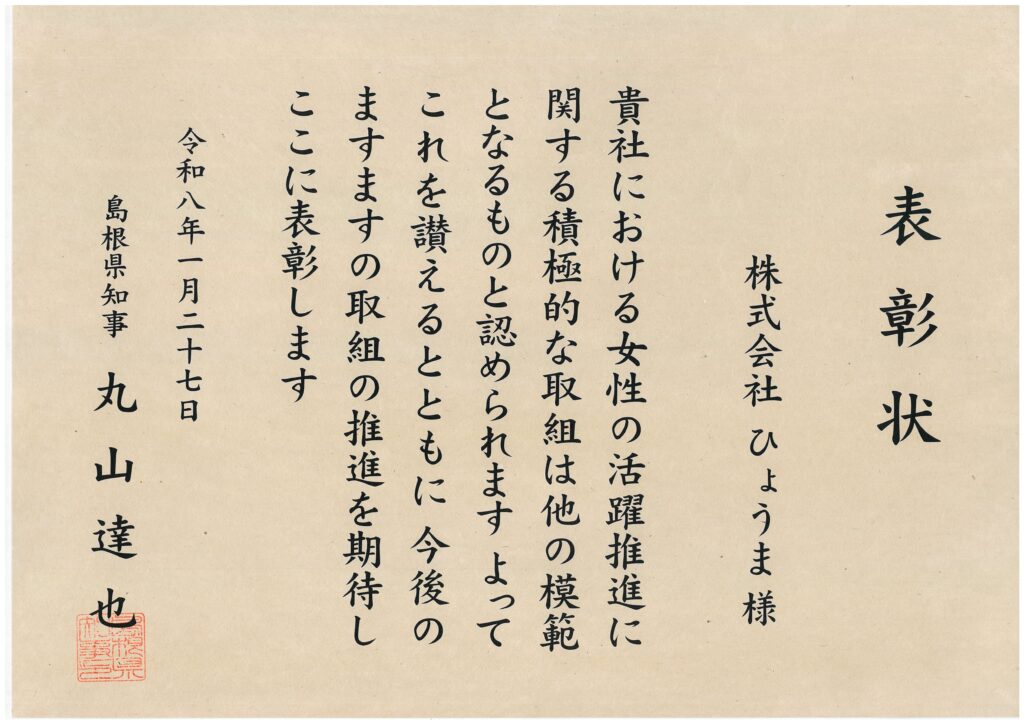 表彰状
株式会社 ひょうま 様
貴社における女性の活躍推進に
関する積極的な取組は他の模範
となるものと認められます よって
これを讃えるとともに 今後の
ますますの取組の推進を期待し
ここに表彰します
令和八年一月二十七日
島根県知事 丸山達也